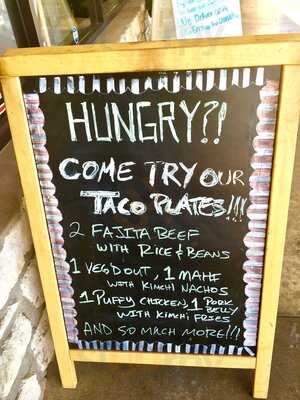 HUNGRY?!
COME TRY OUR
TACO PLATES!!!
2 FAJITA BEEF
WITH RICE & BEANS
1 VEG'D OUT, 1 MAHI
WITH KIMCHI NACHOS
1 PUFFY CHICKEN, 1 PORK BELLY
WITH KIMCHI FRIES
AND SO MUCH MORE!!!